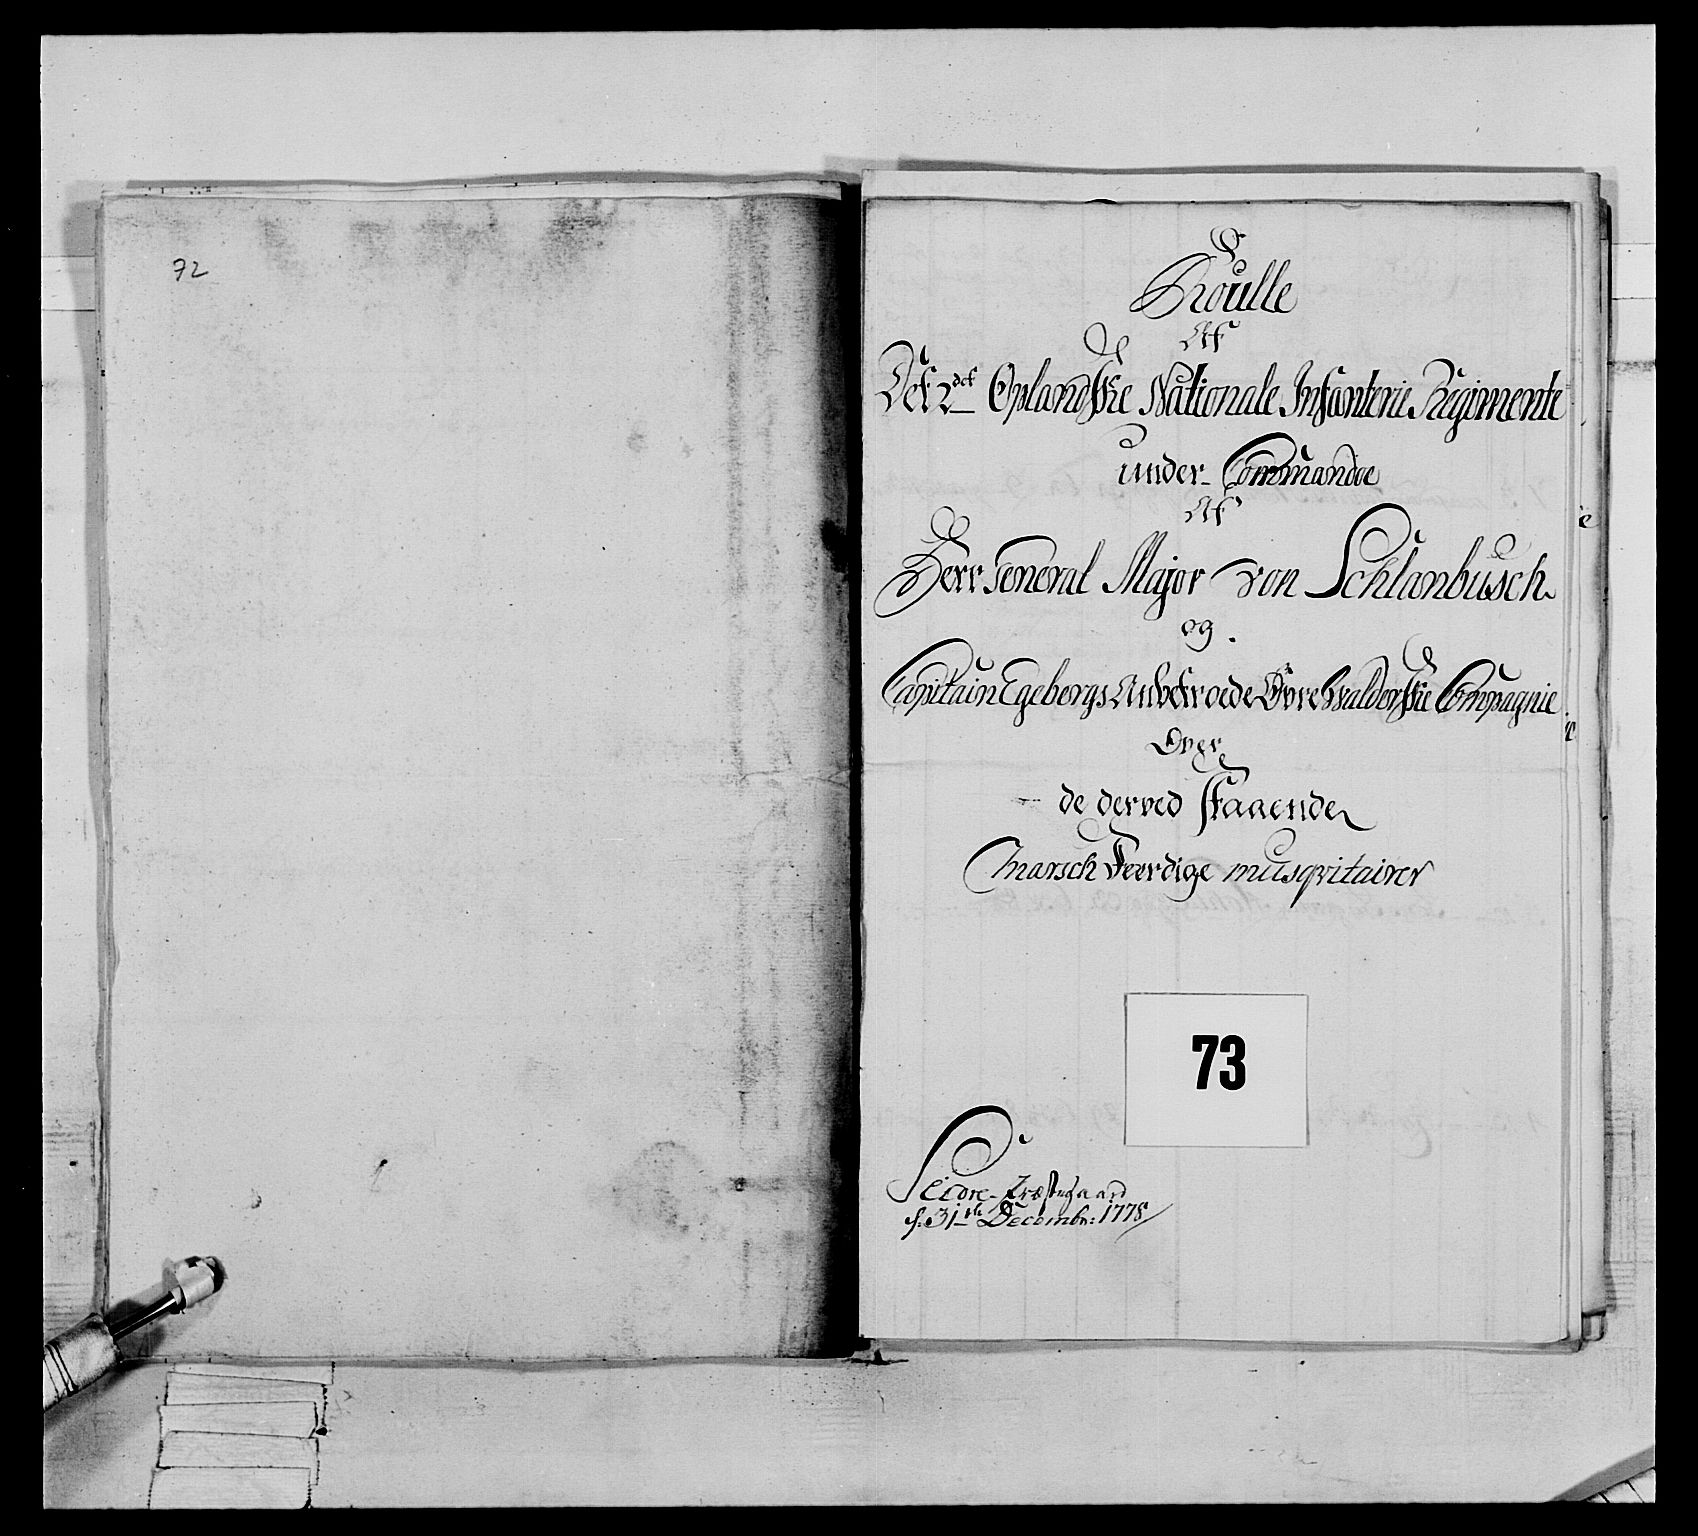 72
Roulle
Af
Det 2det Oplandske Nationale Infanterie Regimente
under Commandoe
Af
Herr General Major von Schlanbusch
og
Capitain Egebergs Anbetroede Øvre Walderske Compagnie
Over
de derved staaende
Marsch Feerdige musqvitairer
73
Seidre Præstegaard
d. 31te Decembr: 1778